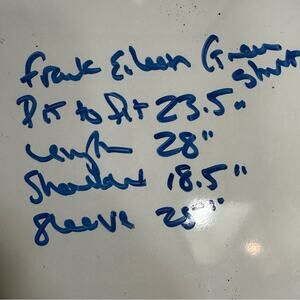 Frank Eileen (Green Shirt
Pit to Pit 23.5"
Length 28"
Shoulder 18.5"
Sleeve